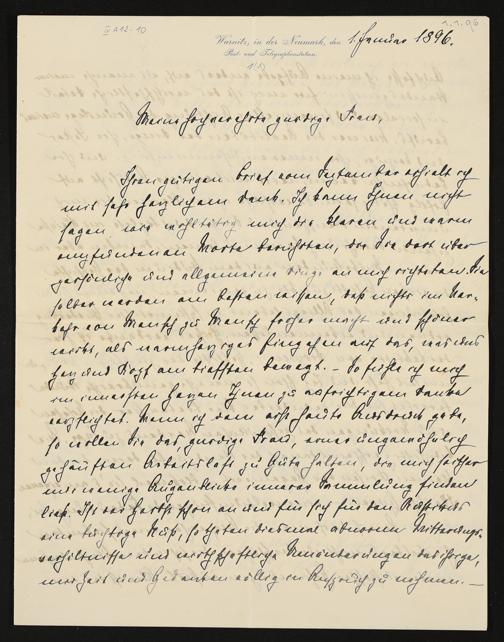 IV A 12-10
1.1.96
Warnitz, in der Neumark, den 1. Januar 1896.
Post- und Telegraphenstation.
Meine hochverehrte gnädige Frau,
Ihren gütigen Brief vom Dezember erhielt ich
mit sehr herzlichem Dank. Ich kann Ihnen nicht
sagen, wie wohltätig mich die klaren und warm
empfundenen Worte berührten, die Sie dort über
persönliche und allgemeine Dinge an mich richteten. Sie
selber werden am besten wissen, daß nichts im Ver-
kehr von Mensch zu Mensch froher macht und schöner
wirkt, als warmherziges Eingehen auf das, was uns
Herz und Kopf am tiefsten bewegt. – So fühle ich mich
im innersten Herzen Ihnen zu aufrichtigem Danke
verpflichtet. Wenn ich dem erst heute Ausdruck gebe,
so wollen Sie das, gnädige Frau, einer ungewöhnlich
gehäuften Arbeitslast zu Gute halten, die mich seither
nur wenige Augenblicke innerer Sammlung finden
ließ. Ist der Herbst schon an und für sich für den
eine Nuß, so haben diesmal abnorme Witterungs-
verhältnisse und wirthschaftliche Veränderungen das ihrige,
und Gedanken völlig in Anspruch zu nehmen. –